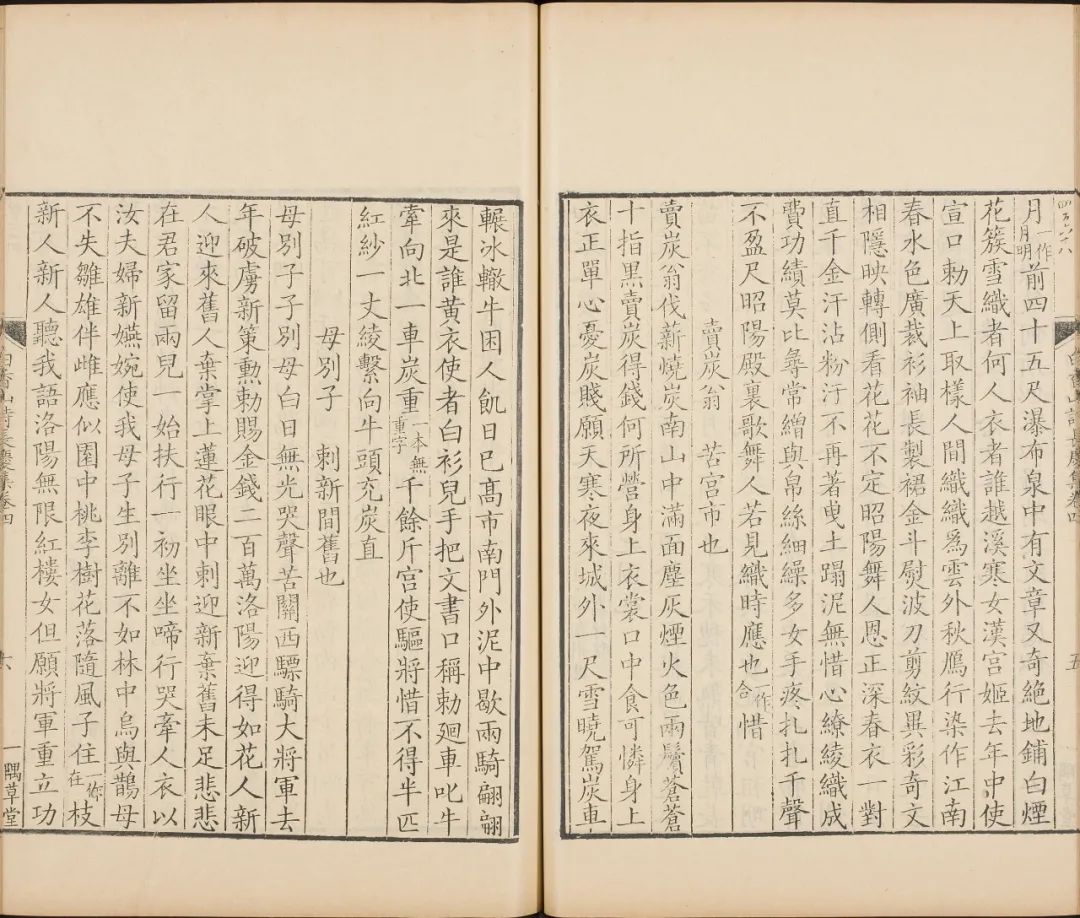 月一作月明前四十五尺瀑布泉中有文章又奇絶地鋪白煙
花簇雪織者何人衣者誰越溪寒女漢宫姬去年中使
宣口勅天上取樣人間織織爲雲外秋鴈行染作江南
春水色廣裁衫袖長製裙金斗熨波刀剪紋異彩奇文
相隱映轉側看花花不定昭陽舞人恩正深春衣一對
直千金汗沾粉汙不再著曳土蹋泥無惜心繚綾織成
費功績莫比尋常繒與帛絲細繰多女手疼扎扎千聲
不盈尺昭陽殿裏歌舞人若見織時應也一作合惜
賣炭翁 苦宫市也
賣炭翁伐薪燒炭南山中滿面塵灰煙火色兩鬢蒼蒼
十指黑賣炭得錢何所營身上衣裳口中食可憐身上
衣正單心憂炭賤願天寒夜來城外一尺雪曉駕炭車
輾冰轍牛困人飢日已高市南門外泥中歇兩騎翩翩
來是誰黄衣使者白衫兒手把文書口稱勅廻車叱牛
牽向北一車炭重一本無重字千餘斤宫使驅將惜不得半匹
紅紗一丈綾繫向牛頭充炭直
母別子 刺新間舊也
母別子子別母白日無光哭聲苦關西驃騎大將軍去
年破虜新策勲勅賜金錢二百萬洛陽迎得如花人新
人迎來舊人棄掌上蓮花眼中刺迎新棄舊未足悲悲
在君家留兩兒一始扶行一初坐坐啼行哭牽人衣以
汝夫婦新嬿婉使我母子生別離不如林中烏與鵲母
不失雛雄伴雌應似園中桃李樹花落隨風子住一作在枝
新人新人聽我語洛陽無限紅樓女但願將軍重立功
白香山詩長慶集卷四
五
白香山詩長慶集卷四
一隅草堂